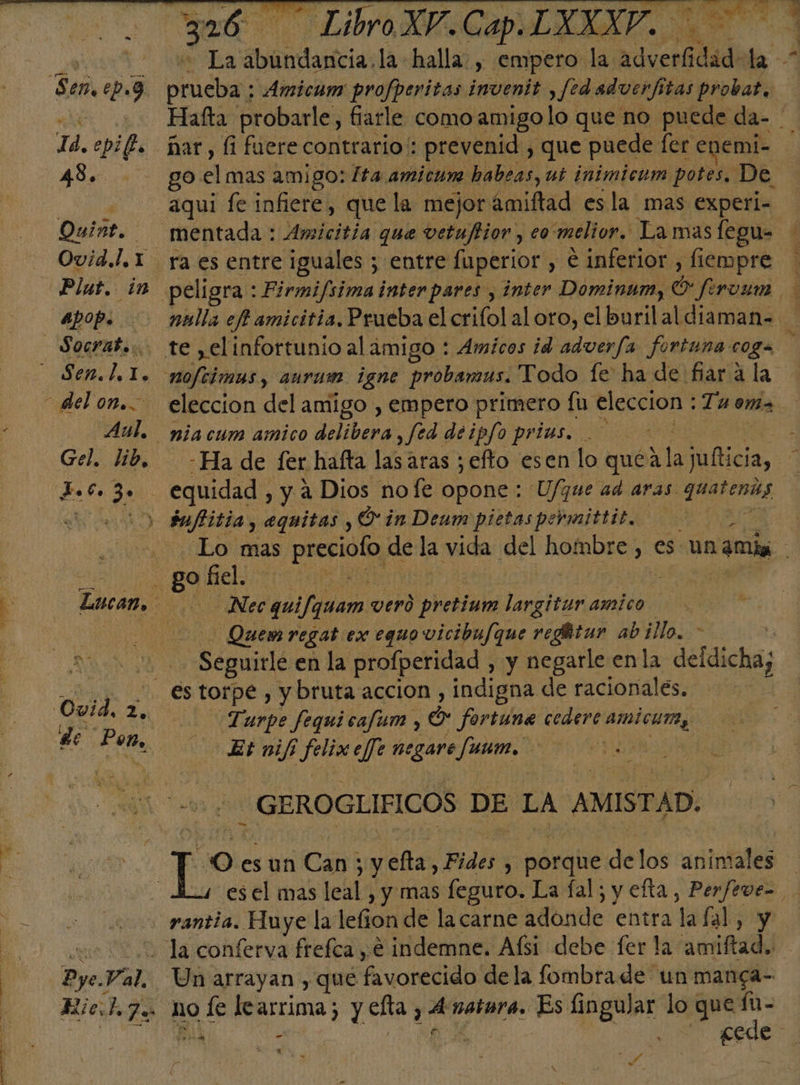 326 Libro XV. Cap. LXXXV.
La abundancia la halla, empero la adversidad la
Sen. ep. 9 prueba : Amicum prosperitas invenit, sed adversitas probat.
Hasta probarle, fiarle como amigo lo que no puede da-
Id. epist. ñar, si fuere contrario: prevenid, que puede ser enemi-
48. go el mas amigo: Ita amicum habeas, ut inimicum potes. De
aqui se infiere, que la mejor amistad es la mas experi-
Quint. mentada : Amicitia que vetustior, eo melior. La mas segu-
Ovid. l. 1 ra es entre iguales ; entre superior, è inferior, siempre
Plut. in peligra : Firmissima inter pares, inter Dominum, & servum
apop. nulla est amicitia. Prueba el crisol al oro, el buril al diaman-
Socrat. te, el infortunio al amigo : Amicos id adversa fortuna cog-
Sen. l. 1. noscimus, aurum igne probamus. Todo se ha de fiar à la
del on. eleccion del amigo, empero primero su eleccion : Tu om-
Aul. nia cum amico delibera, sed de ipso prius.
Gel. lib. Ha de ser hasta las aras ; esto es en lo que à la justicia,
1. c. 3. equidad, y à Dios no se opone : Usque ad aras quatenus
justitia, aequitas, & in Deum pietas permittit.
Lo mas precioso de la vida del hombre, es un ami-
go fiel.
Lucan. Nec quisquam verò pretium largitur amico
Quem regat ex equo vicibusque regitur ab illo.
Seguirle en la prosperidad, y negarle en la desdicha;
es torpe, y bruta accion, indigna de racionales.
Ovid. 2. Turpe sequi casum, & fortuna cedere amicum,
de Pon. Et nisi felix esse negare suum.
GEROGLIFICOS DE LA AMISTAD.
LO es un Can ; y esta, Fides, porque de los animales
es el mas leal, y mas seguro. La sal ; y esta, Perseve-
rantia. Huye la lesion de la carne adonde entra la sal, y
la conserva fresca, è indemne. Assi debe ser la amistad.
Pyc. Val. Un arrayan, que favorecido de la sombra de un mança-
Hie. l. 7. no se le arrima ; y esta, A natura. Es singular lo que su-
cede